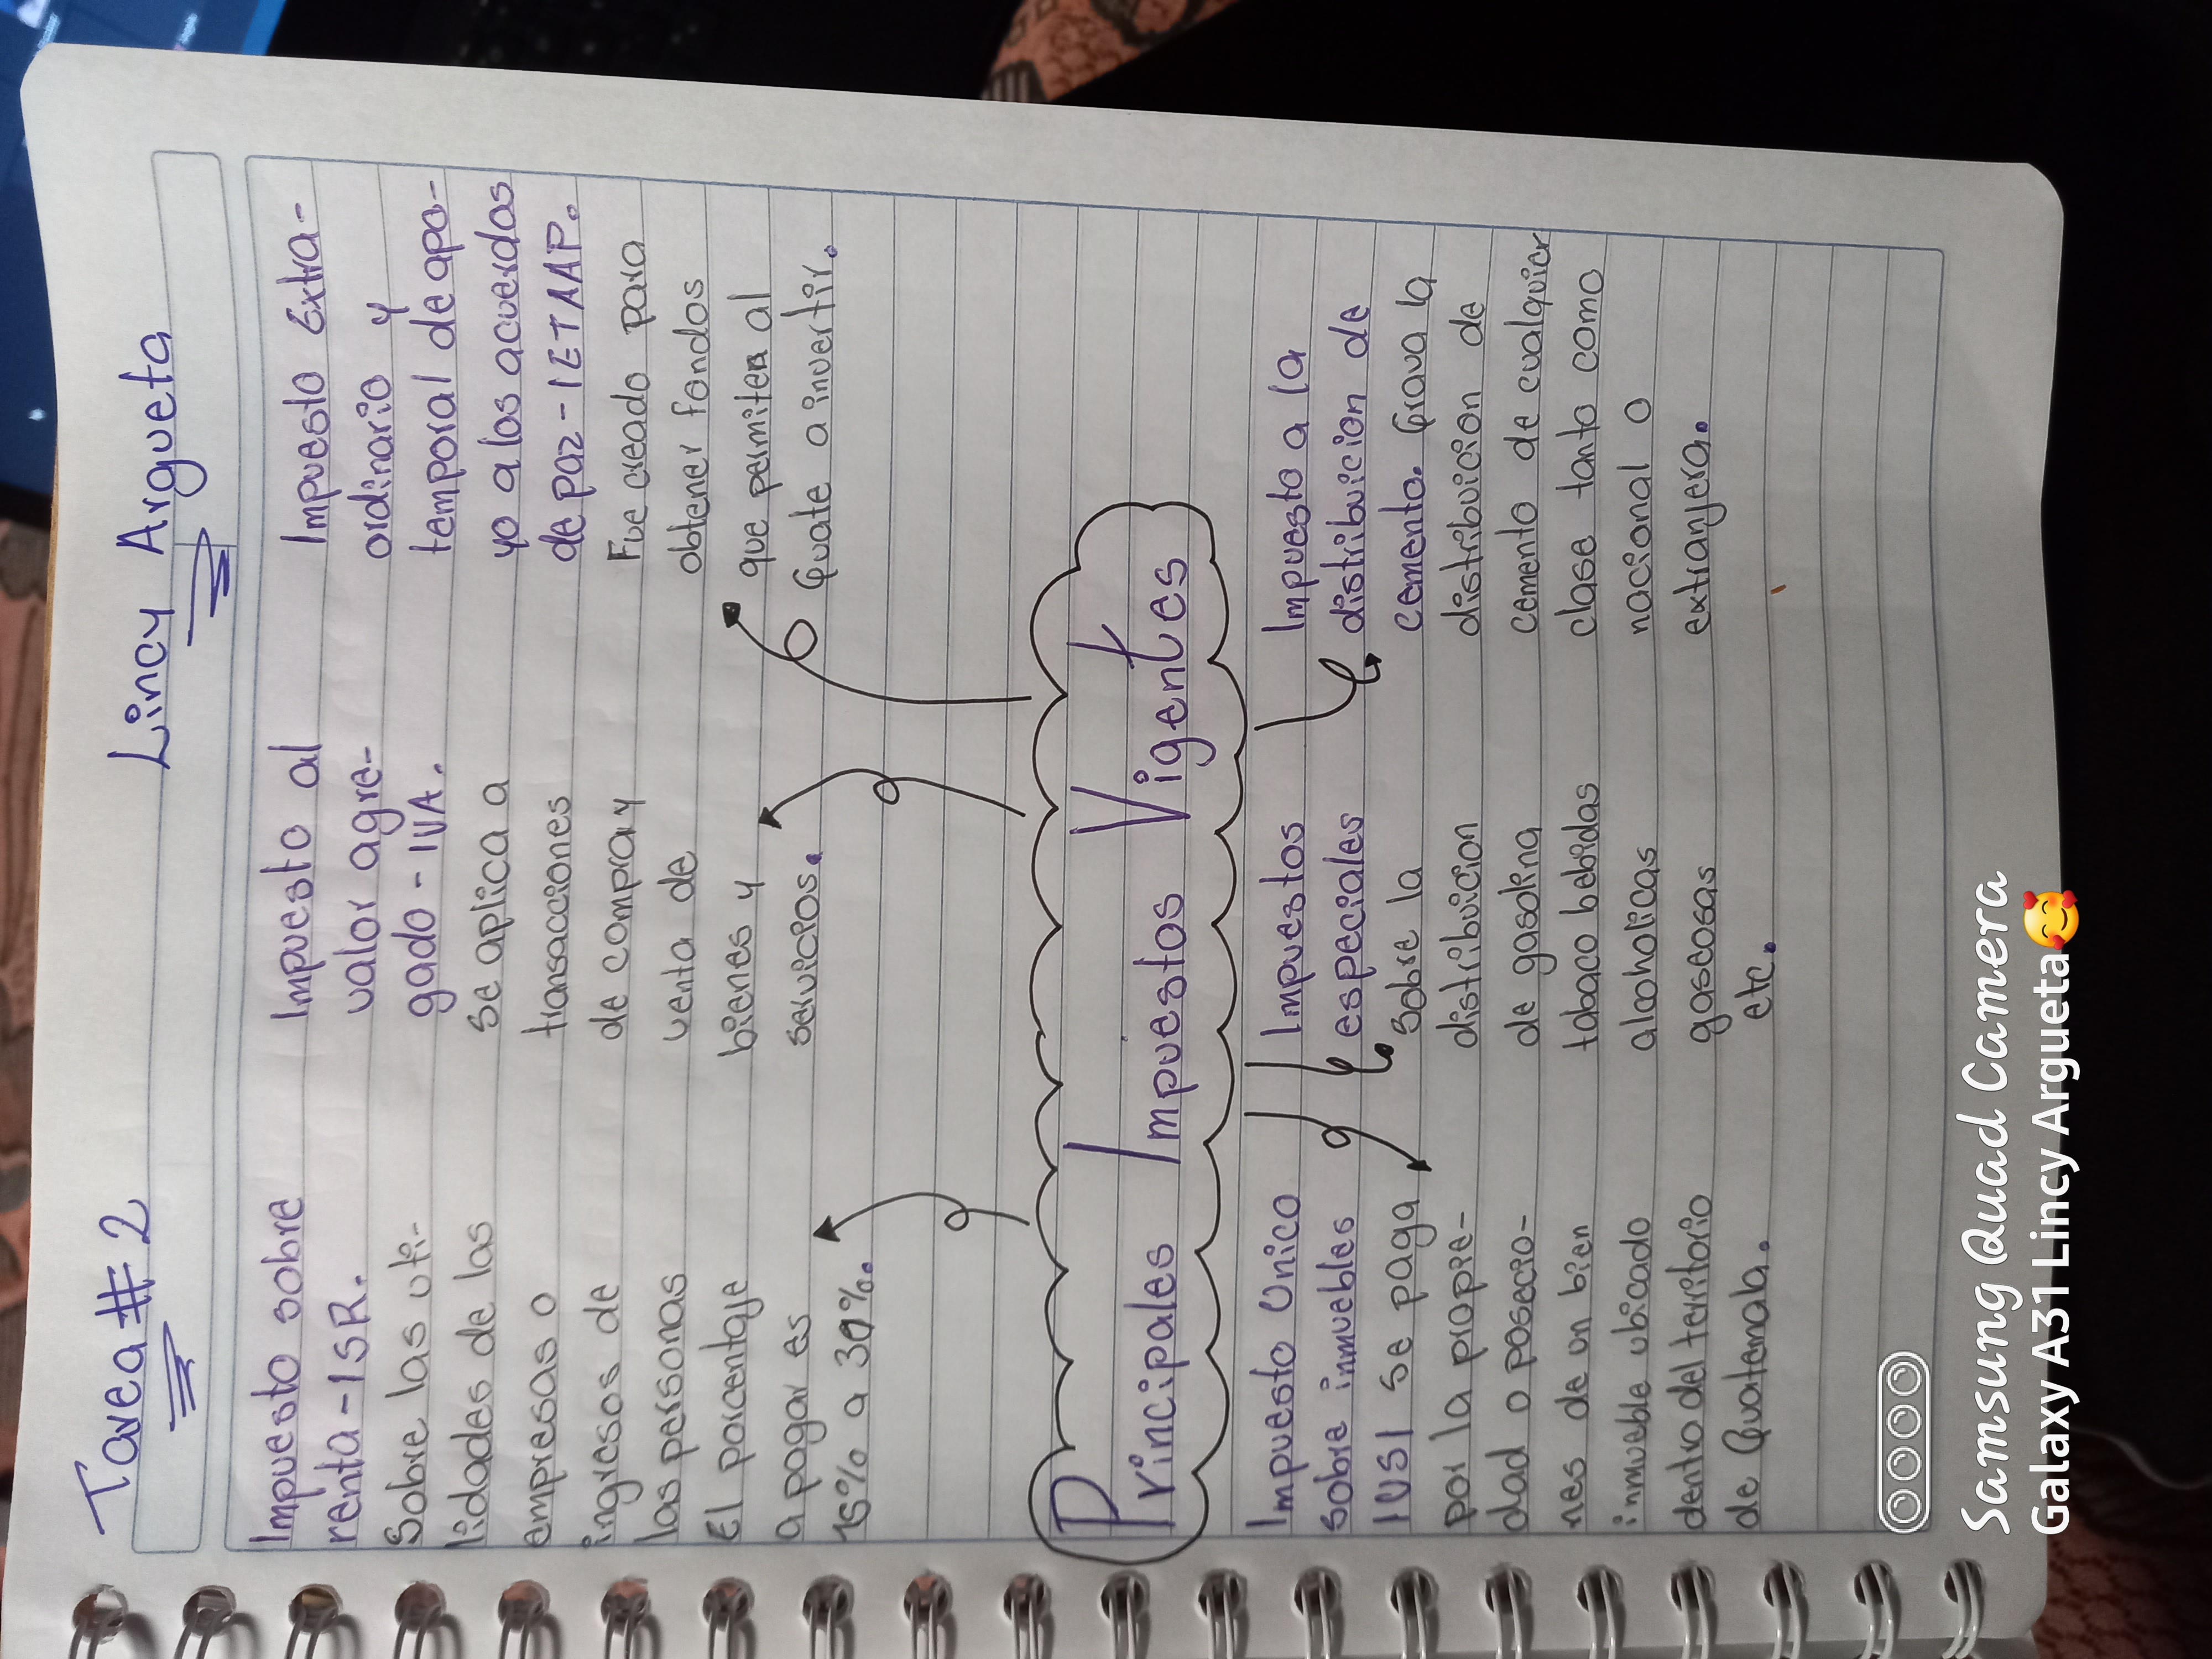 Tarea # 2
Lincy Argueta
Impuesto sobre
renta - ISR.
Sobre las uti-
lidades de las
empresas o
ingresos de
las personas
El porcentaje
a pagar es
15% a 30%.
Impuesto al
valor agre-
gado - IVA.
Se aplica a
transacciones
de compra y
venta de
bienes y
servicios.
Impuesto Extra-
ordinario y
temporal de apo-
yo a los acuerdos
de paz - IETAAP.
Fue creado para
obtener fondos
que permiten al
Guate a invertir.
Principales Impuestos Vigentes
Impuesto Unico
sobre inmuebles
IUSI se paga
por la propie-
dad o posecio-
nes de un bien
inmueble ubicado
dentro del territorio
de Guatemala.
Impuestos
especiales
Sobre la
distribuicion
de gasolina
tabaco bebidas
alcoholicas
gaseosas
etc.
Impuesto a la
distribuicion de
cemento. Grava la
distribuicion de
cemento de cualquier
clase tanto como
nacional o
extranjera.
Samsung Quad Camera
Galaxy A31 Lincy Argueta🥰